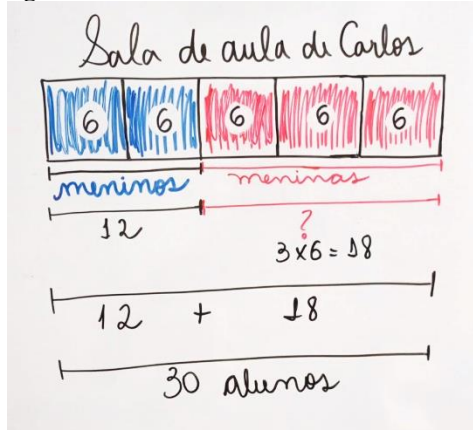 Sala de aula de Carlos
6 6 6 6 6
meninos meninas
12 ?
3 x 6 = 18
12 + 18
30 alunos